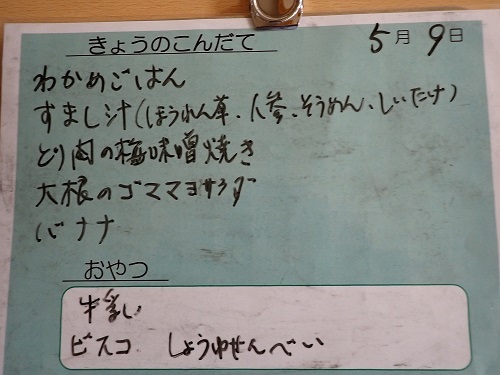 きょうのこんだて
5月9日
わかめごはん
すまし汁(ほうれん草、人参、そうめん、しいたけ)
とり肉の梅味噌焼き
大根のゴママヨサラダ
バナナ
おやつ
牛乳
ビスコ しょうゆせんべい